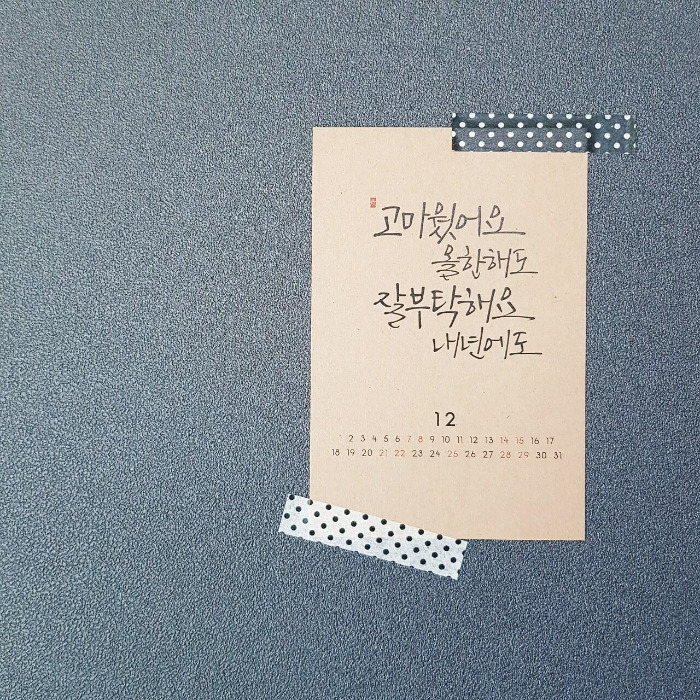 고마웠어요
올한해도
잘부탁해요
내년에도
12
1 2 3 4 5 6 7 8 9 10 11 12 13 14 15 16 17
18 19 20 21 22 23 24 25 26 27 28 29 30 31